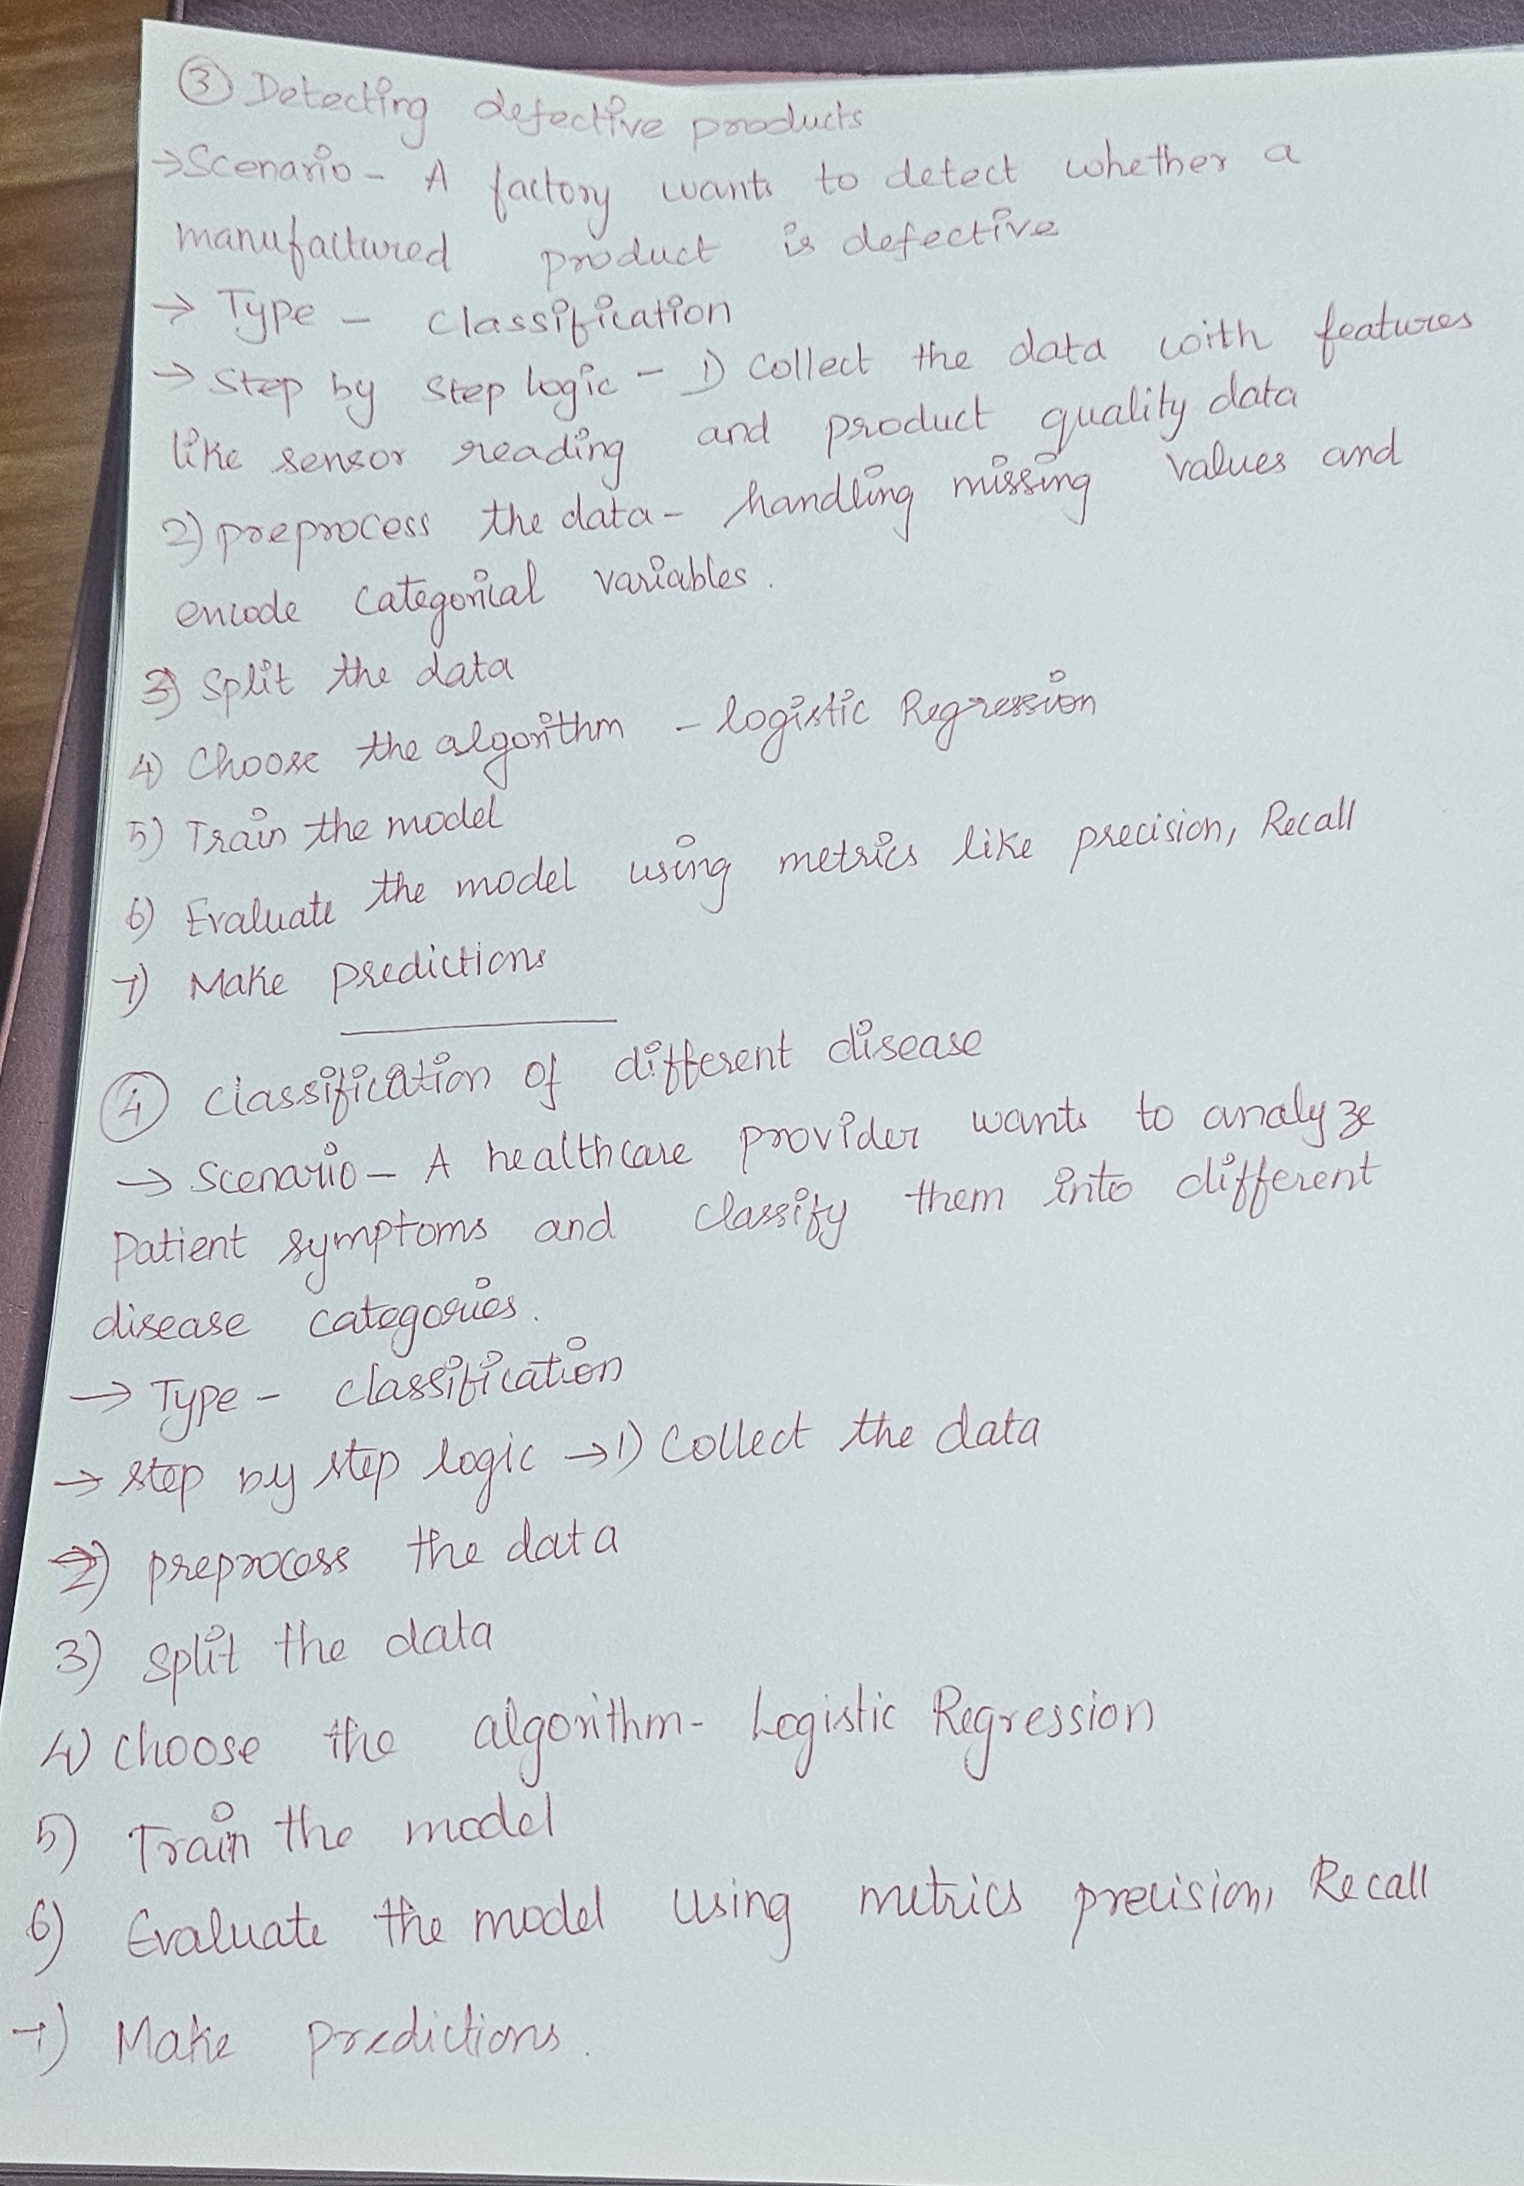 ③ Detecting defective products
→ Scenario - A factory wants to detect whether a
manufactured product is defective
→ Type - classification
→ Step by step logic - 1) Collect the data with features
like sensor reading and product quality data
2) preprocess the data - handling missing values and
encode categorial variables.
3) Split the data
4) Choose the algorithm - logistic Regression
5) Train the model
6) Evaluate the model using metrics like precision, Recall
7) Make predictions
④ classification of different disease
→ Scenario - A healthcare provider wants to analyze
patient symptoms and classify them into different
disease categories.
→ Type - classification
→ step by step logic → 1) Collect the data
2) preprocess the data
3) split the data
4) choose the algorithm - Logistic Regression
5) Train the model
6) Evaluate the model using metrics precision, Recall
7) Make predictions.